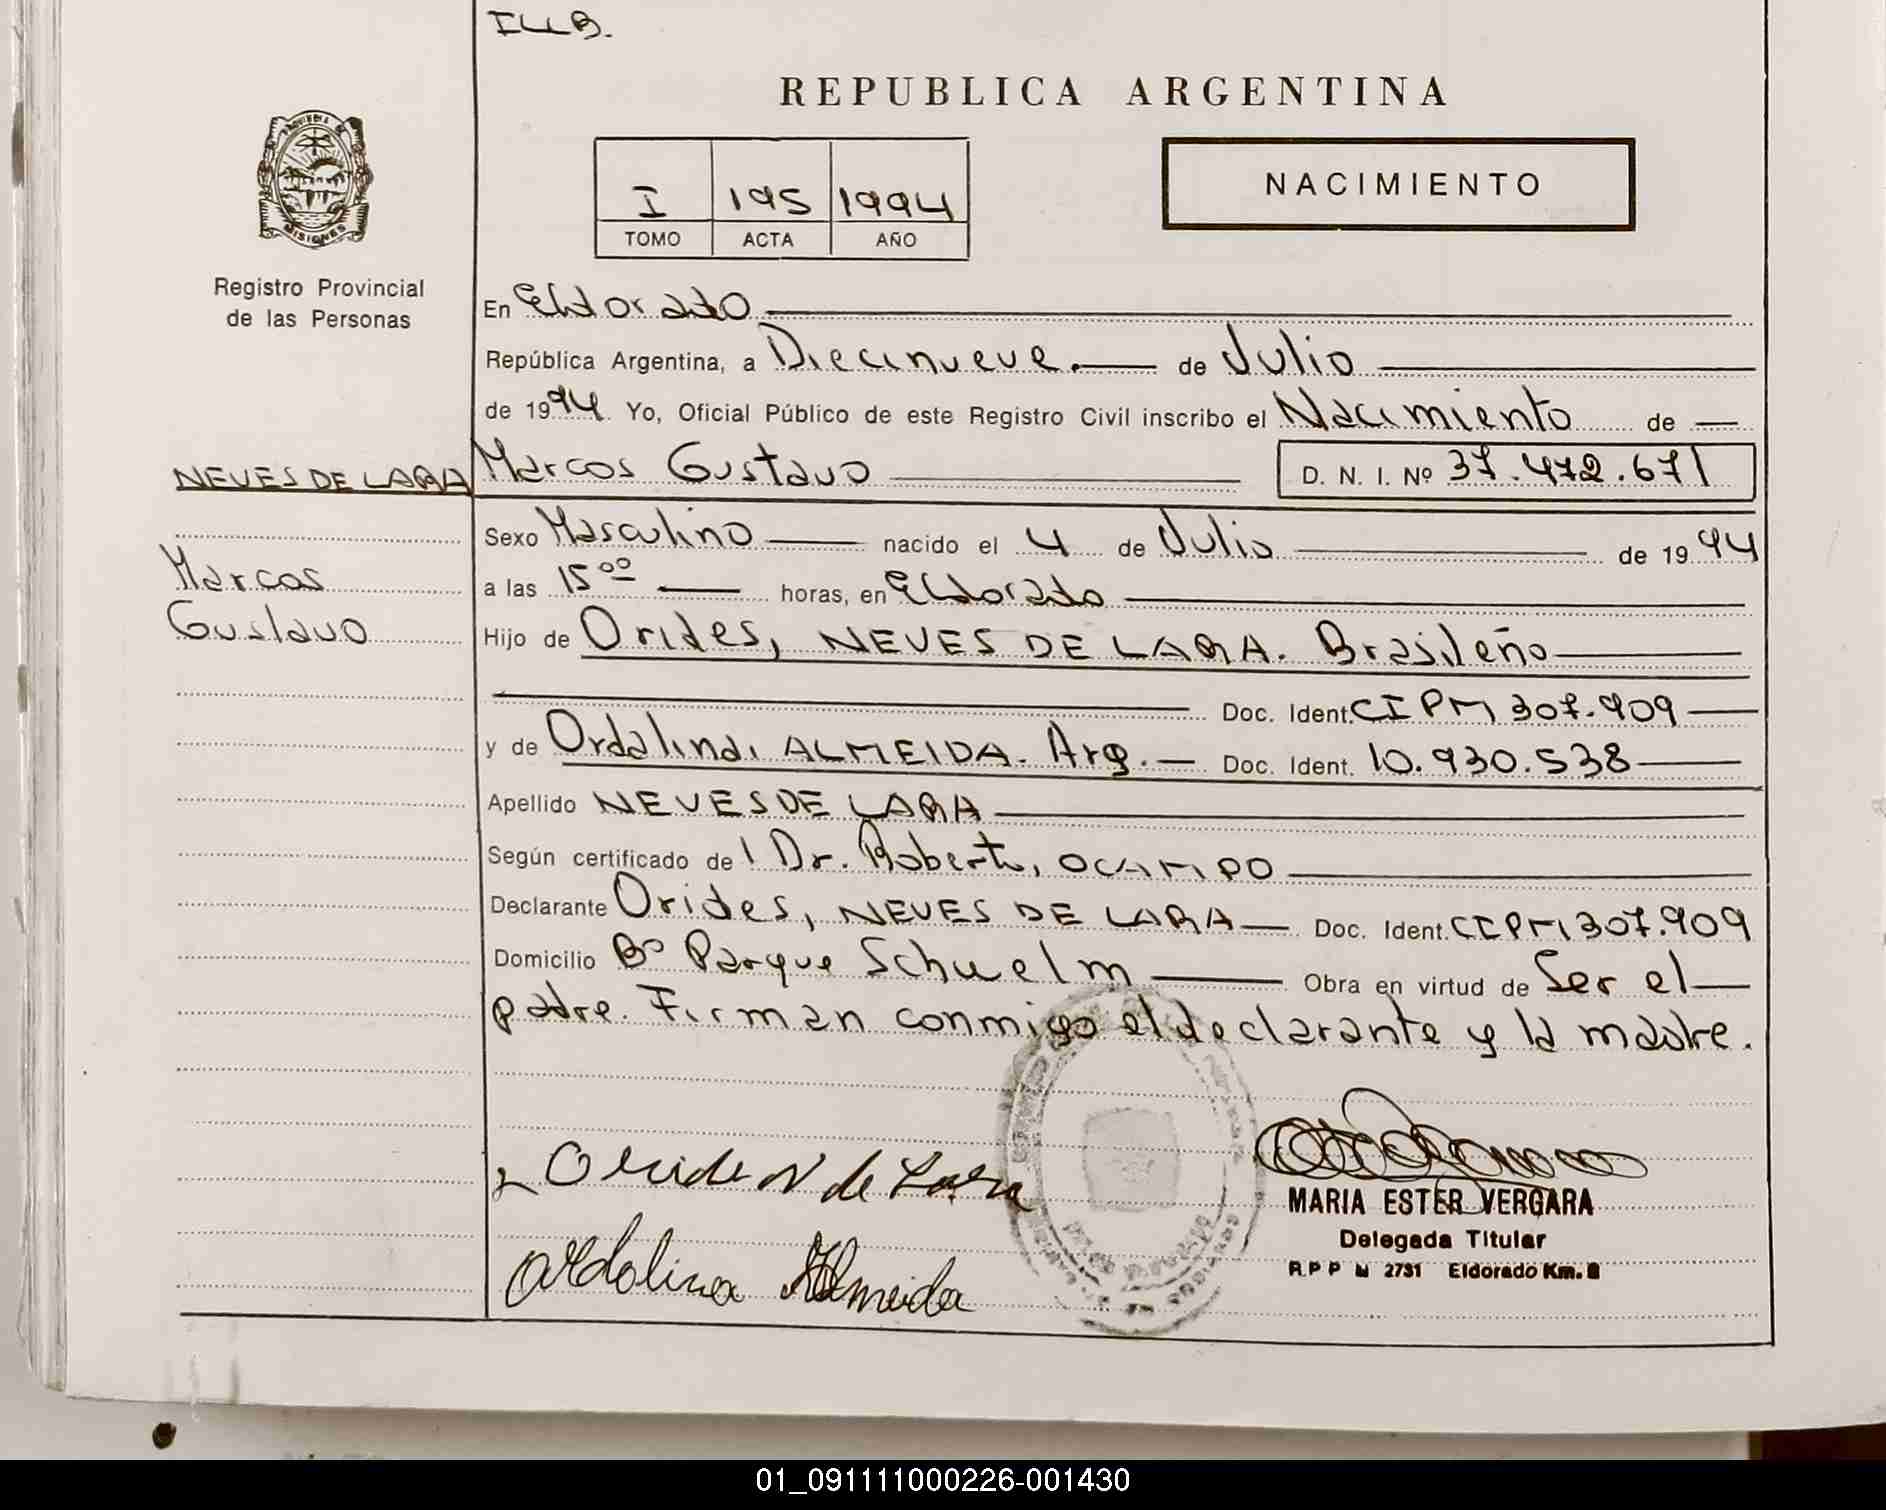 REPUBLICA ARGENTINA
I 195 1994
TOMO ACTA AÑO
NACIMIENTO
MISIONES
Registro Provincial
de las Personas
En Eldorado
República Argentina, a Diecinueve. de Julio
de 1994 Yo, Oficial Público de este Registro Civil inscribo el Nacimiento de
NEVES DE LARA Marcos Gustavo D. N. I. Nº 37.472.671
Sexo Masculino nacido el 4 de Julio de 1994
Marcos
Gustavo
a las 15 00 horas, en Eldorado
Hijo de Orides, NEVES DE LARA. Brasileño
Doc. Ident. CIPM 307.909
y de Ordalina, ALMEIDA. Arg. Doc. Ident. 10.930.538
Apellido NEVES DE LARA
Según certificado del Dr. Roberto, OCAMPO
Declarante Orides, NEVES DE LARA Doc. Ident. CIPM 307.909
Domicilio Bº Parque Schwelm Obra en virtud de Ser el
padre. Firman conmigo el declarante y la madre.
Oride N de Lara
Ordolina Almeida
MARIA ESTER VERGARA
Delegada Titular
R P P M 2731 Eldorado Km. 8
01_091111000226-001430